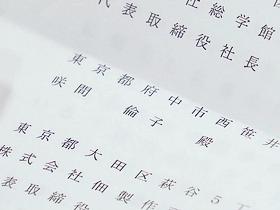 社総学館
代表取締役社長
東京都府中市西笹井
咲間 倫子 殿
東京都大田区萩谷5丁
株式会社佃製作
表取締役